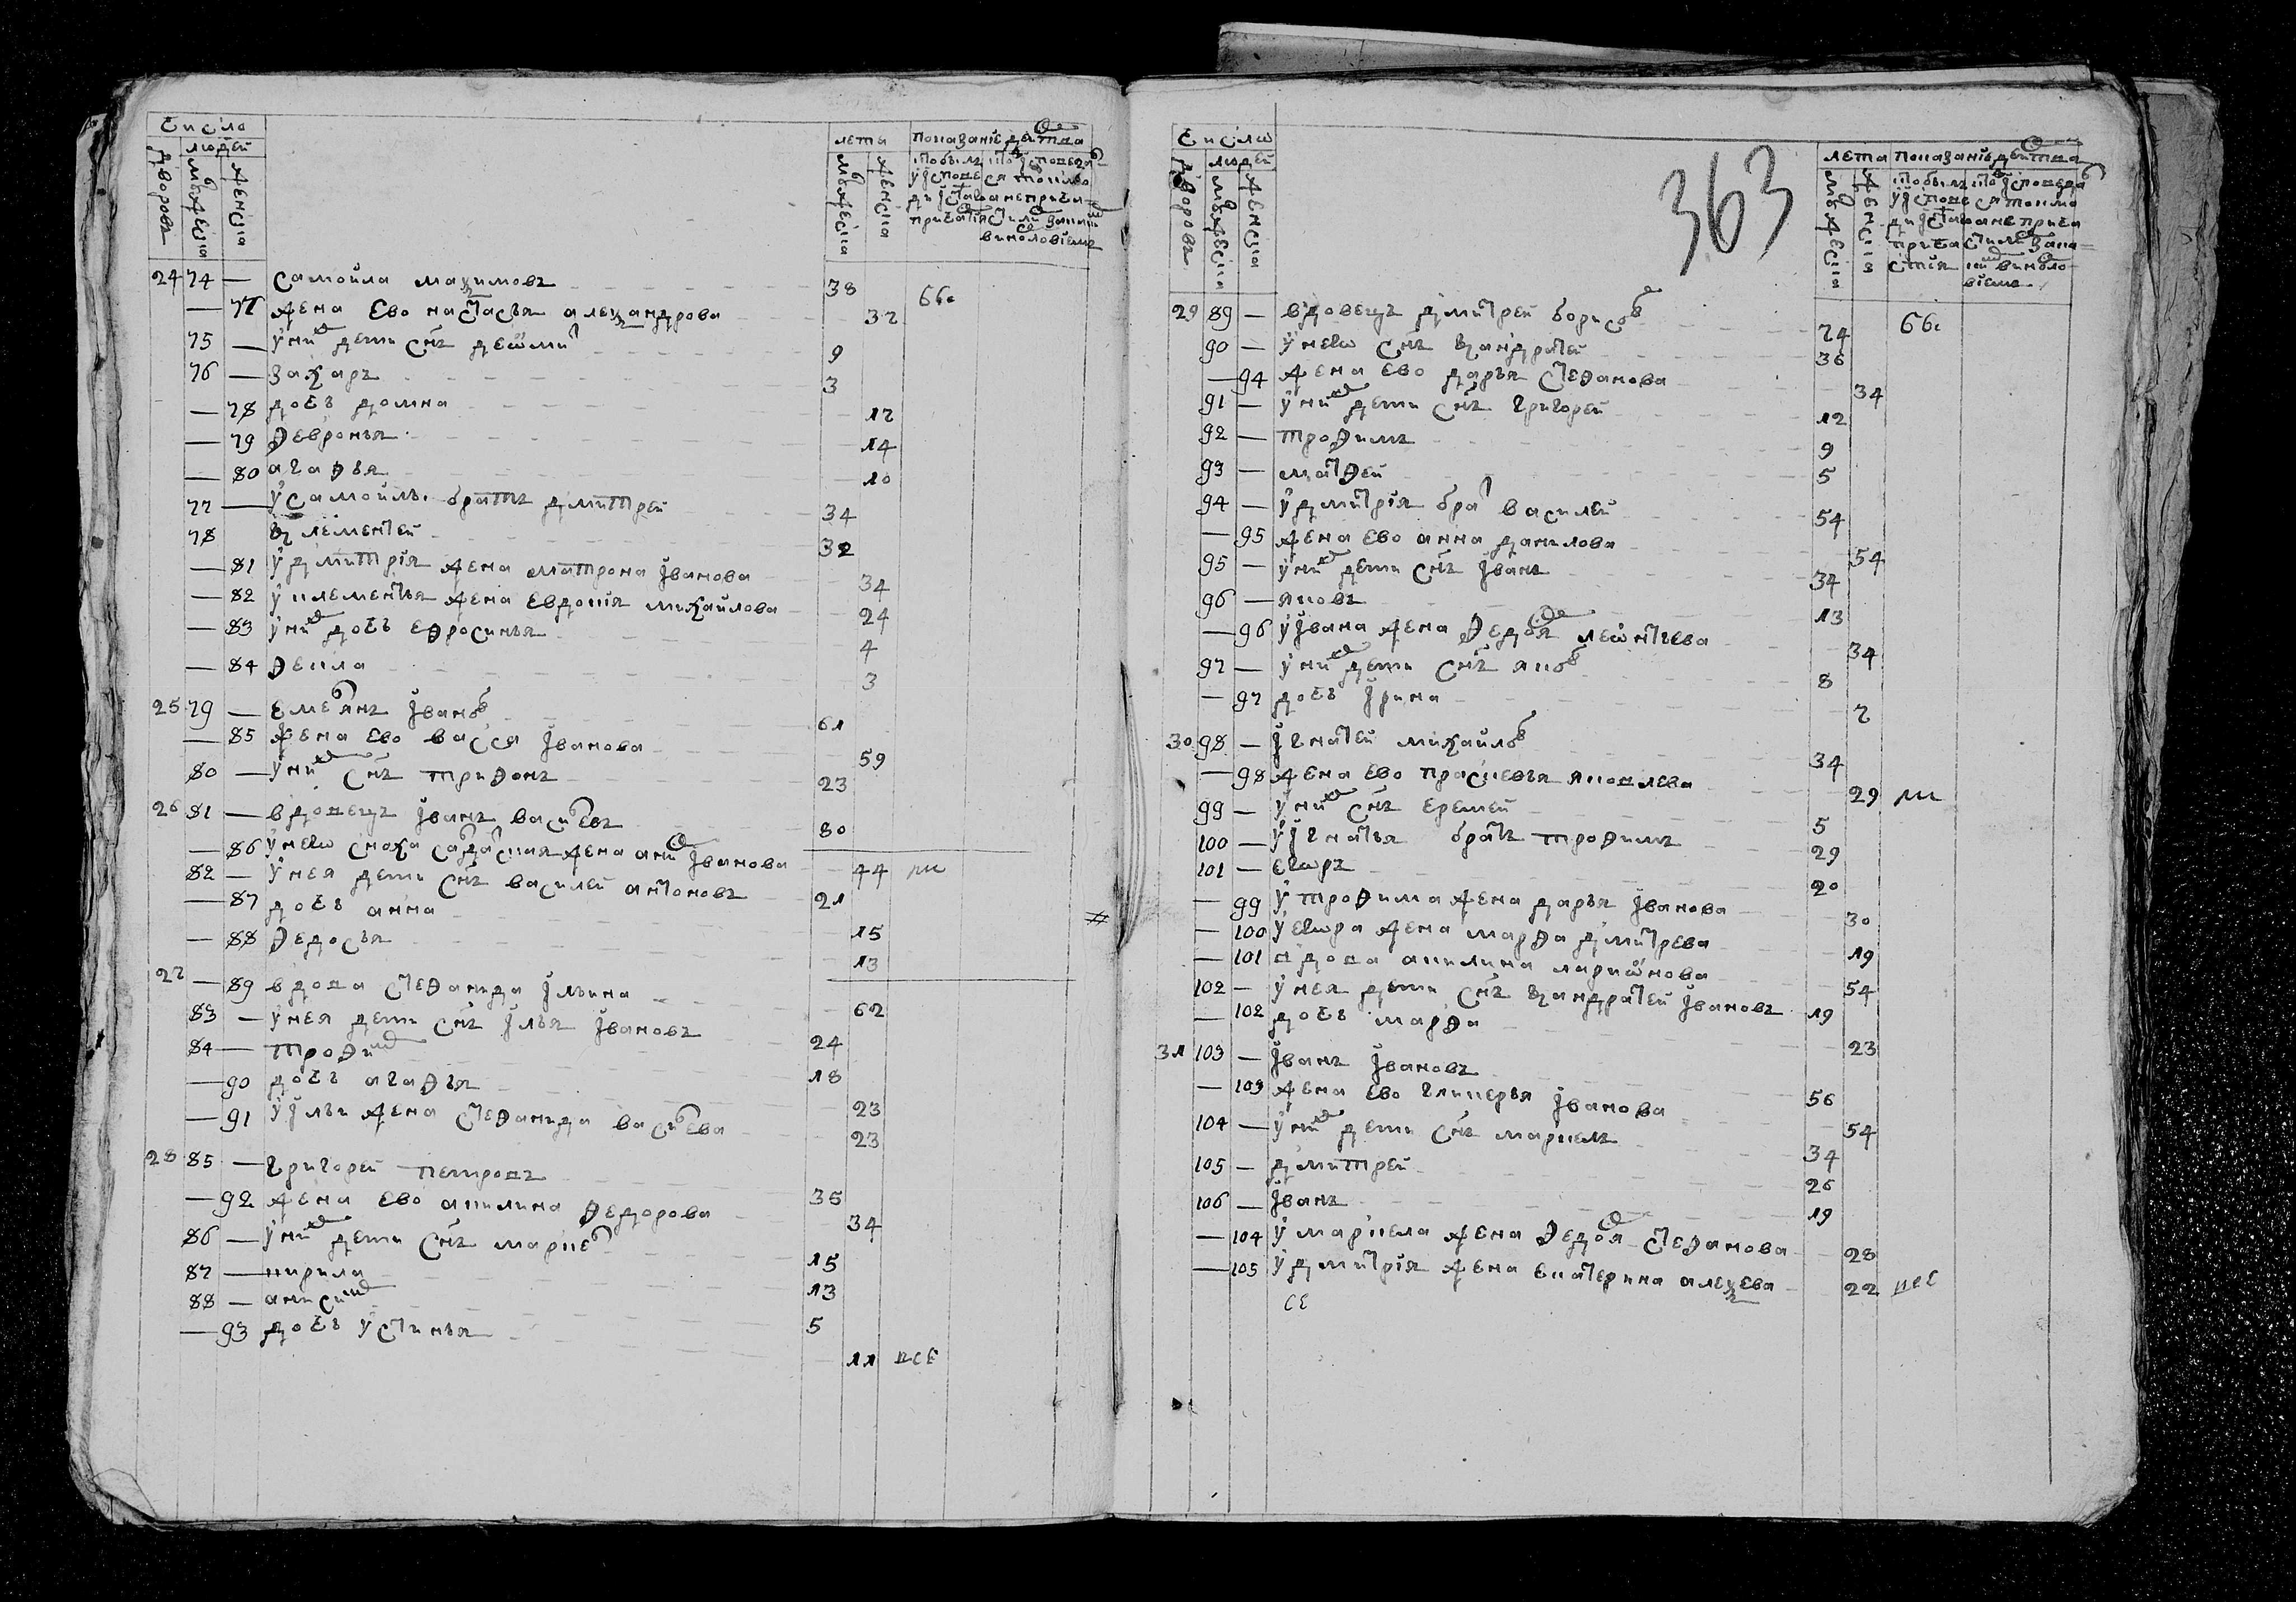 Число
людей
дворовъ
мужеска
женска
лета
мужеска
женска
24 74 — самойла маѯимовъ 38 бы
— 77 жена ево настасья алеѯандрова 32
75 — у них дети снъ
76 — захаръ 3
— 78 дочь домна 12
— 79 февронья 14
— 80 агафья 10
77 — у самойлы братъ дмитрей 34
78 клементей 32
— 81 у дмитрія жена матрона іванова 34
— 82 у клементья жена евдокія михайлова 24
— 83 у них дочь ефросинья 4
— 84 фекла 3
25 79 — емельянъ іванов 61
— 85 жена ево васса іванова 59
80 — у них снъ трифонъ 23
26 81 — вдовецъ іванъ васильевъ 80
— 86 у нево сноха салдацкая жена іванова 44
82 — у нея дети снъ василей антоновъ 21
— 87 дочь анна 15
— 88 федосья 13
27 — 89 вдова стефанида ільина 62
83 — у нея дети снъ ілья івановъ 24
84 — трофим 18
— 90 дочь агафья 23
— 91 у ільи жена стефанида васильева 23
28 85 — григорей петровъ 35
— 92 жена ево акилина федорова 34
86 — у них дети снъ маркел 15
87 — кирила 13
88 — анисим 5
— 93 дочь устинья 11 все
363
Число
людей
дворовъ
мужеска
женска
лета
мужеска
женска
29 89 — вдовецъ дмитрей борисов 74 бы
90 — у нево снъ кандратей 36
— 94 жена ево дарья стефанова 34
91 — у них дети снъ григорей 12
92 — трофимъ 9
93 — матфей 5
94 — у дмитрія брат василей 54
— 95 жена ево анна данилова 54
95 — у них дети снъ іванъ 34
96 — яковъ 13
— 96 у івана жена федося леонтьева 34
97 — у них дети снъ яков 8
— 97 дочь ірина 2
30 98 — ігнатей михайлов 34
— 98 жена ево прасковья яковлева 29
99 — у них снъ еремей 5
100 — у ігнатья братъ трофимъ 29
101 — егоръ 20
— 99 у трофима жена дарья іванова 30
— 100 у егора жена марфа дмитрева 19
— 101 вдова акилина ларионова 54
102 — у нея дети снъ кандратей івановъ 19
— 102 дочь марфа 23
31 103 — іванъ івановъ 56
— 103 жена ево гликерья іванова 54
104 — у них дети снъ маркелъ 34
105 — дмитрей 26
106 — іванъ 19
— 104 у маркела жена федося стефанова 28
— 105 у дмитрія жена екатерина алеѯева 22 все
се